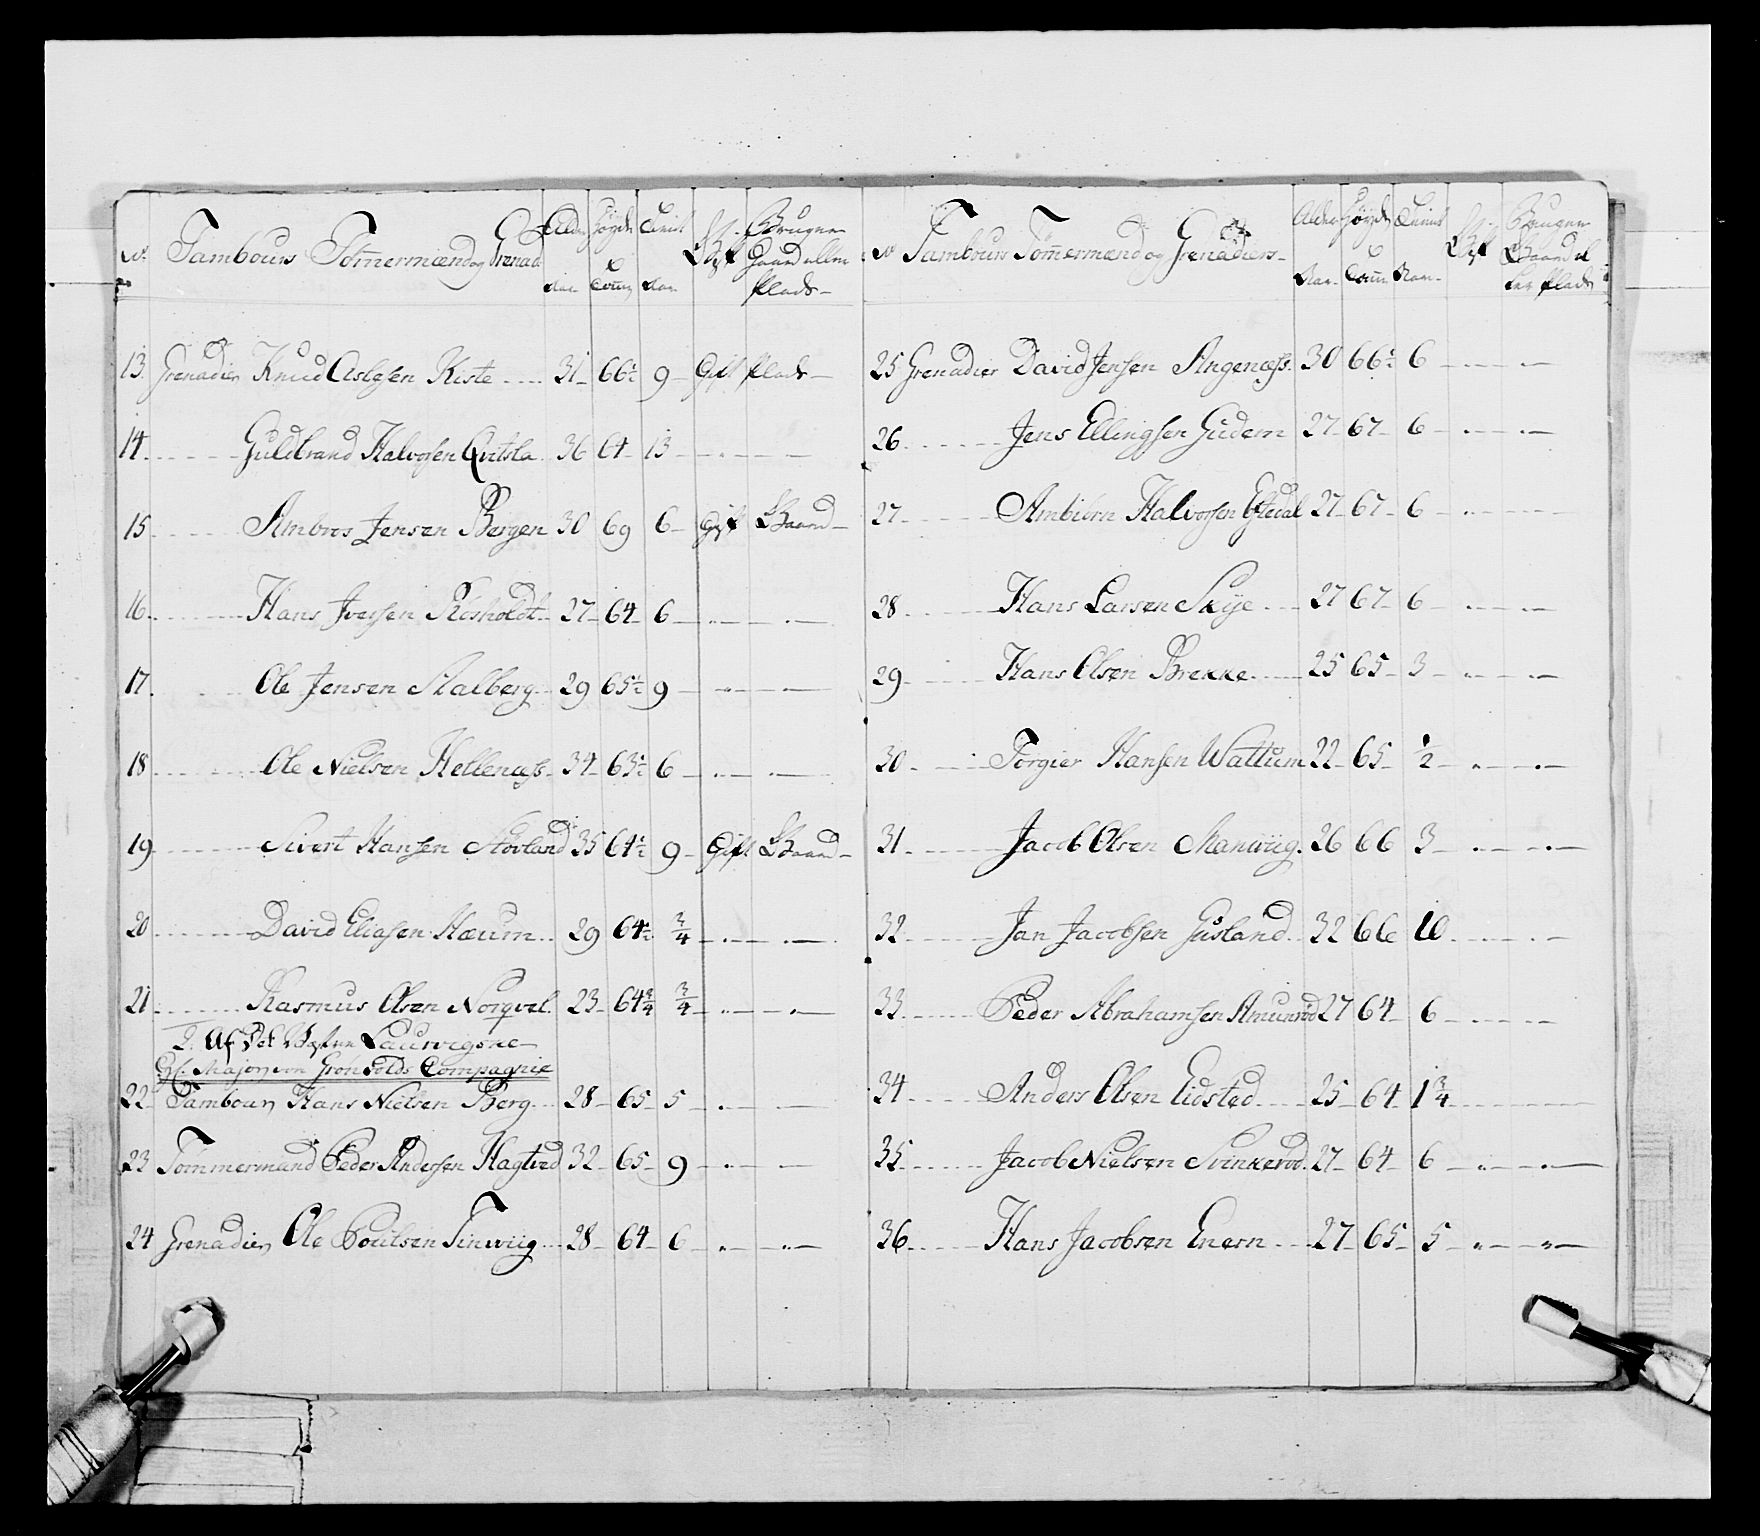 No. Tambours Tømermænd og Grenad. Alder Aar Høyde Tom̄ Tient Aar Gift Bruger Gaard eller Plads
13 Grenadier Knud Aslesen Kiste 31 66½ 9 Gift Plads
14 Guldbrand Halvorsen Qvitsla 36 64 13
15 Ambros Jensen Bergen 30 69 6 Gift Gaard
16 Hans Iversen Risholdt 27 64 6
17 Ole Jensen Aalberg 29 65½ 9
18 Ole Nielsen Hellenæss 34 63½ 6
19 Sivert Hansen Støvland 35 64½ 9 Gift Gaard
20 David Eliasen Hæum 29 64½ ¾
21 Rasmus Olsen Norqvel 23 64¾ ¾
2. Af Det Laurvigske
Major von Grönvolds Compagnie
22 Tambour Hans Nielsen Berg 28 65 5
23 Tømmermand Peder Andersen Hagtved 32 65 9
24 Grenadier Ole Poulsen Tinvüg 28 64 6
No Tambours Tømermænd og Grenadiers Alder Aar Høyde Tom̄ Tient Aar Gift Bruger Gaard el ler Plads
25 Grenadier David Jensen Angenæss 30 66½ 6
26 Jens Ellingsen Gudem 27 67 6
27 Ambiørn Halvorsen Eftedal 27 67 6
28 Hans Larsen Skye 27 67 6
29 Hans Olsen Brekke 25 65 3
30 Torgier Hansen Wattum 22 65 ½
31 Jacob Olsen Manvüg 26 66 3
32 Jan Jacobsen Gusland 32 66 10
33 Peder Abrahamsen Amunrød 27 64 6
34 Anders Olsen Eidsted 25 64 1¾
35 Jacob Nielsen Svinkerød 27 64 6
36 Hans Jacobsen Enern 27 65 5